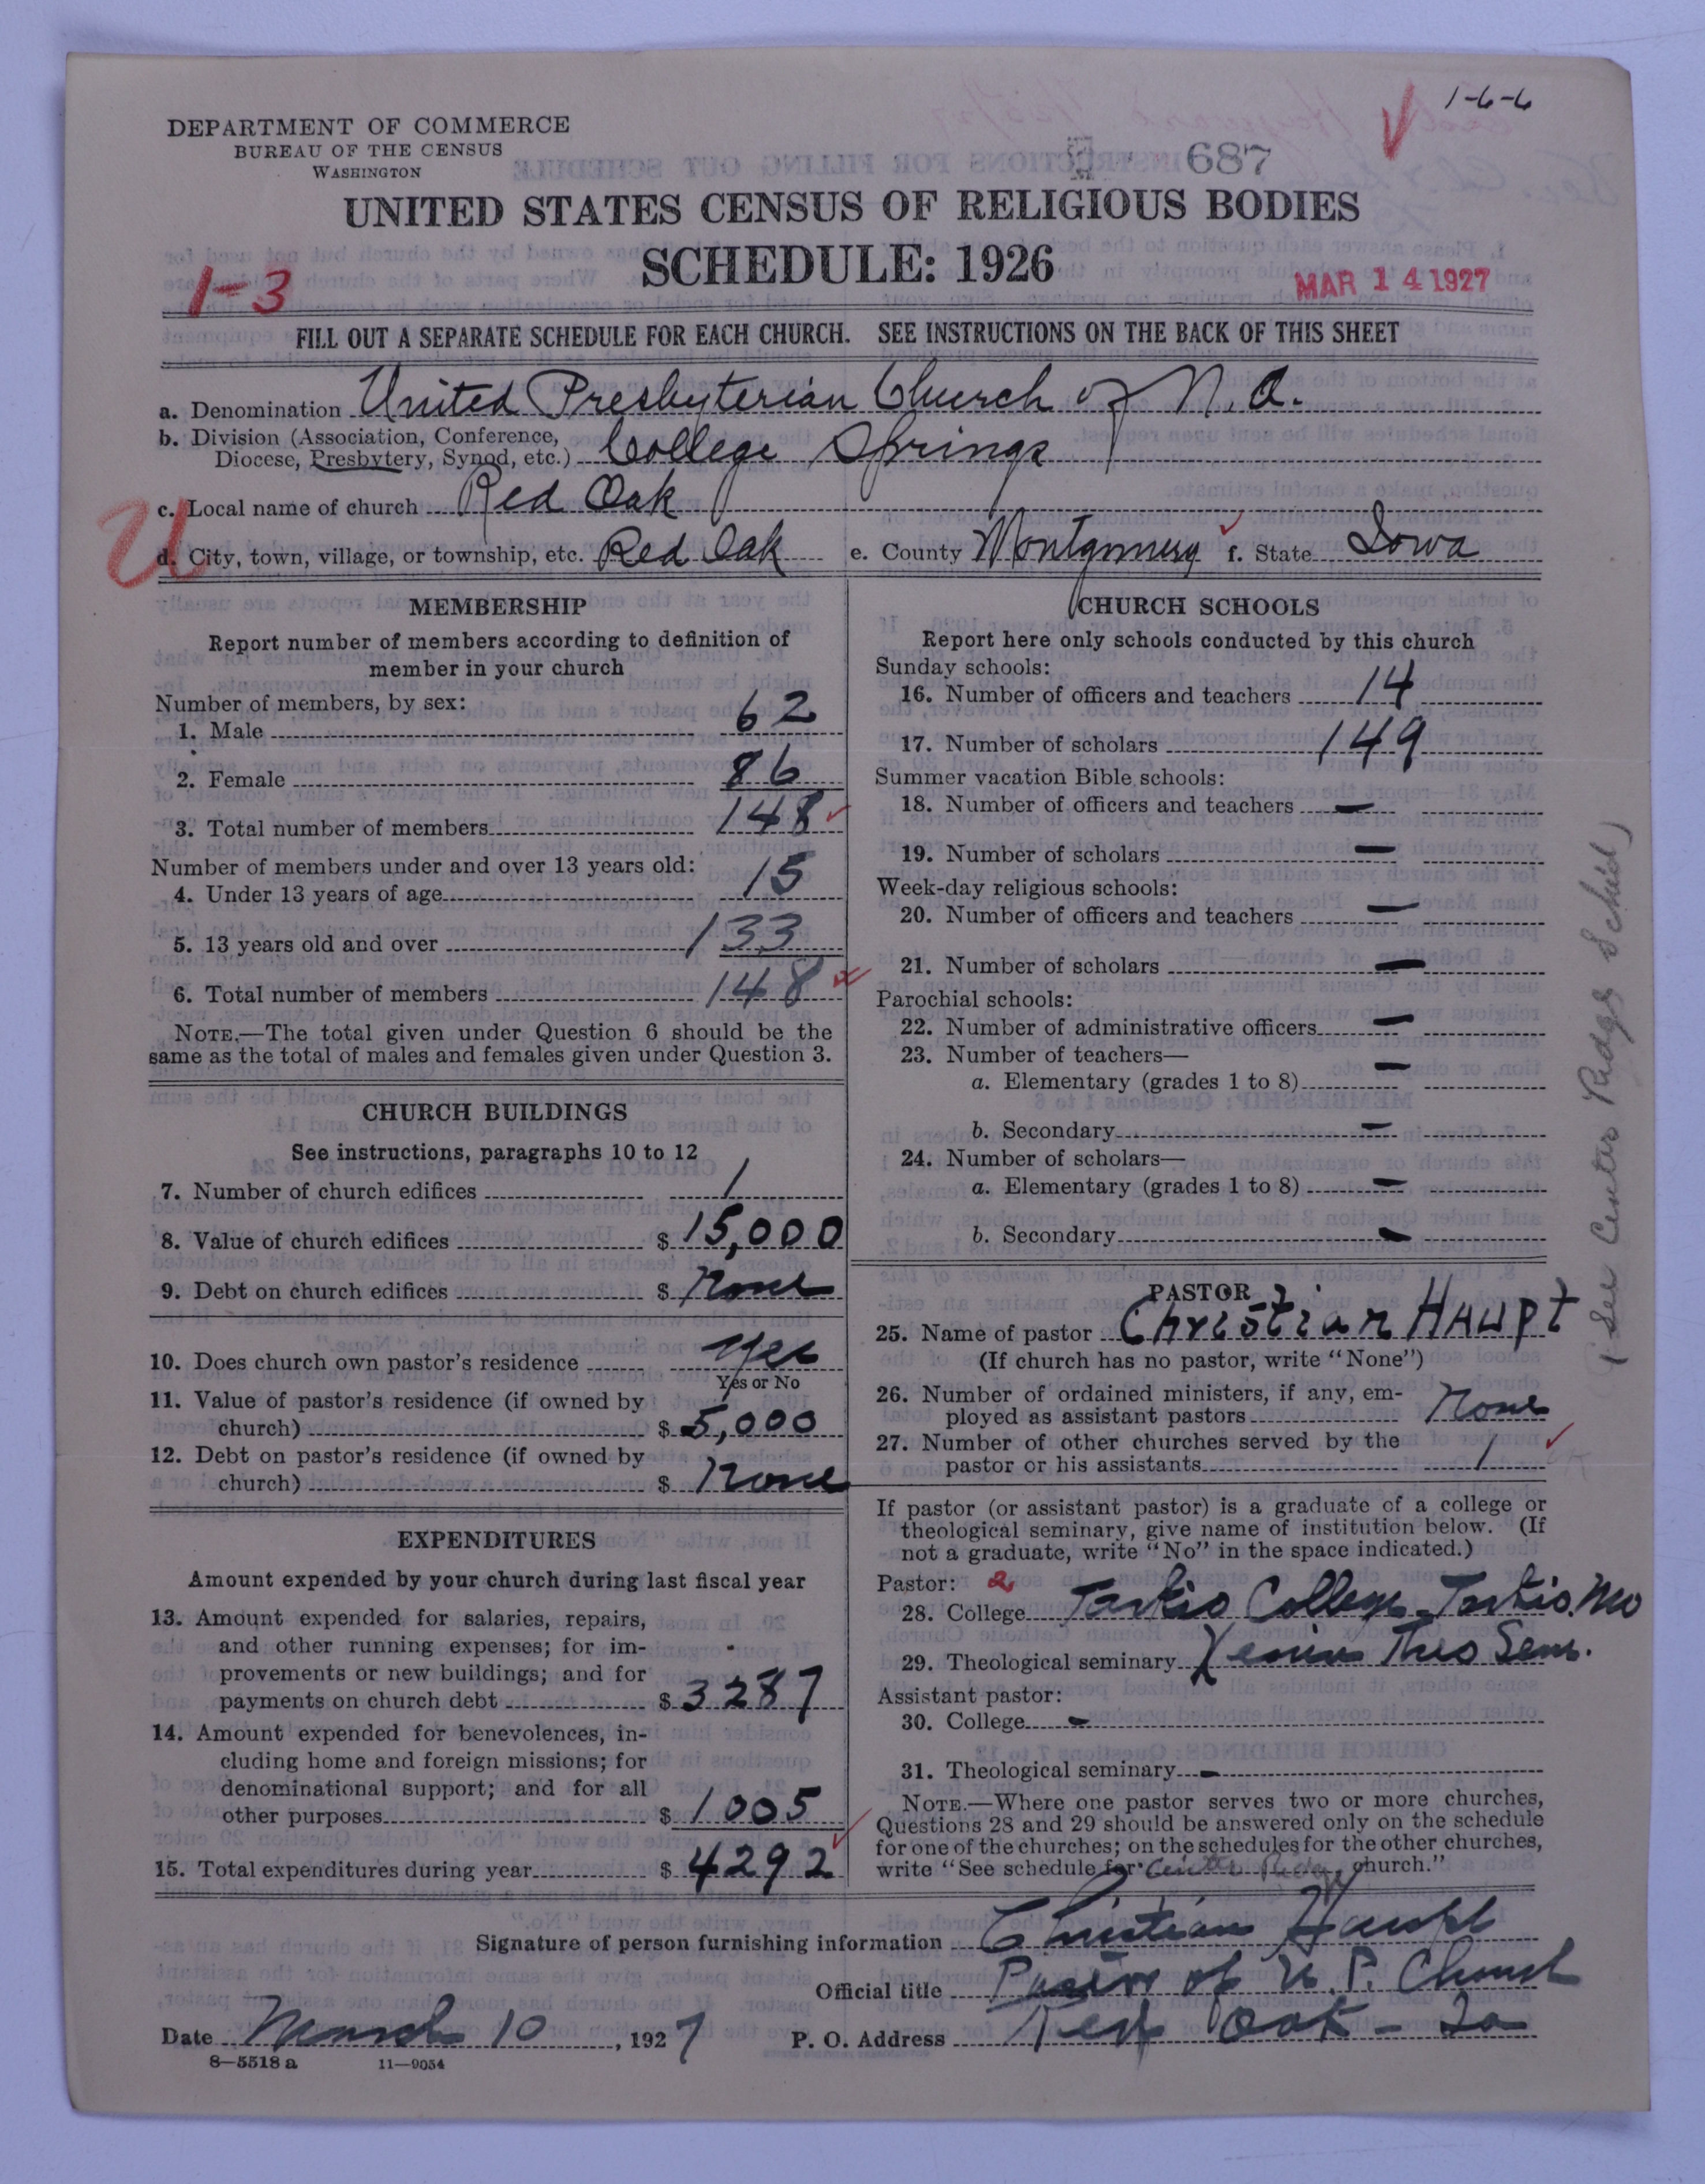 1-6-6
DEPARTMENT OF COMMERCE
BUREAU OF THE CENSUS
WASHINGTON
687
UNITED STATES CENSUS OF RELIGIOUS BODIES
SCHEDULE: 1926
1-3
MAR 14 1927
FILL OUT A SEPARATE SCHEDULE FOR EACH CHURCH. SEE INSTRUCTIONS ON THE BACK OF THIS SHEET
a. Denomination United Presbyterian Church of N. A.
b. Division (Association, Conference,
Diocese, Presbytery, Synod, etc.) College Springs
c. Local name of church Red Oak
U
d. City, town, village, or township, etc. Red Oak e. County Montgomery f. State Iowa
MEMBERSHIP
Report number of members according to definition of
member in your church
Number of members, by sex:
1. Male 62
2. Female 86
3. Total number of members 148
Number of members under and over 13 years old:
4. Under 13 years of age 15
5. 13 years old and over 133
6. Total number of members 148
NOTE.—The total given under Question 6 should be the
same as the total of males and females given under Question 3.
CHURCH BUILDINGS
See instructions, paragraphs 10 to 12
7. Number of church edifices 1
8. Value of church edifices $ 15,000
9. Debt on church edifices $ None
10. Does church own pastor's residence Yes
Yes or No
11. Value of pastor's residence (if owned by
church) $ 5,000
12. Debt on pastor's residence (if owned by
church) $ None
EXPENDITURES
Amount expended by your church during last fiscal year
13. Amount expended for salaries, repairs,
and other running expenses; for im-
provements or new buildings; and for
payments on church debt $ 3287
14. Amount expended for benevolences, in-
cluding home and foreign missions; for
denominational support; and for all
other purposes $ 1005
15. Total expenditures during year $ 4292
CHURCH SCHOOLS
Report here only schools conducted by this church
Sunday schools:
16. Number of officers and teachers 14
17. Number of scholars 149
Summer vacation Bible schools:
18. Number of officers and teachers —
19. Number of scholars —
Week-day religious schools:
20. Number of officers and teachers —
21. Number of scholars —
Parochial schools:
22. Number of administrative officers —
23. Number of teachers—
a. Elementary (grades 1 to 8) —
b. Secondary —
24. Number of scholars—
a. Elementary (grades 1 to 8) —
b. Secondary —
PASTOR
25. Name of pastor Christian Haupt
(If church has no pastor, write "None")
26. Number of ordained ministers, if any, em-
ployed as assistant pastors None
27. Number of other churches served by the
pastor or his assistants 1
If pastor (or assistant pastor) is a graduate of a college or
theological seminary, give name of institution below. (If
not a graduate, write "No" in the space indicated.)
Pastor: 2
28. College Tarkio College Tarkio. Mo
29. Theological seminary Xenia Theo Sem.
Assistant pastor:
30. College —
31. Theological seminary —
NOTE.—Where one pastor serves two or more churches,
Questions 28 and 29 should be answered only on the schedule
for one of the churches; on the schedules for the other churches,
write "See schedule for Center Ridge church."
(See Center Ridge Sched)
Signature of person furnishing information Christian Haupt
Official title Pastor of U. P. Church
Date March 10, 1927 P. O. Address Red Oak - Ia
8—5518 a 11—9054